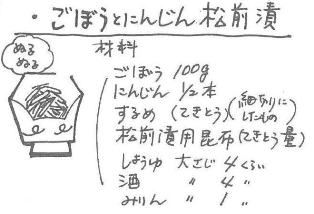 ・ごぼうとにんじん松前漬
ぬるぬる
材料
ごぼう 100g
にんじん 1/2本
するめ (てきとう) (細切りにしたもの)
松前漬用昆布 (てきとう量)
しょうゆ 大さじ 4くらい
酒 〃 4 〃
みりん 〃 1 〃